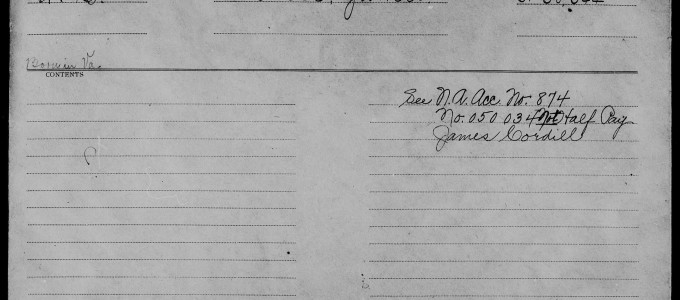 Born in Va.
CONTENTS
See N.A. Acc. No. 874
No. 050 034 Not Half Pay
James Cordill